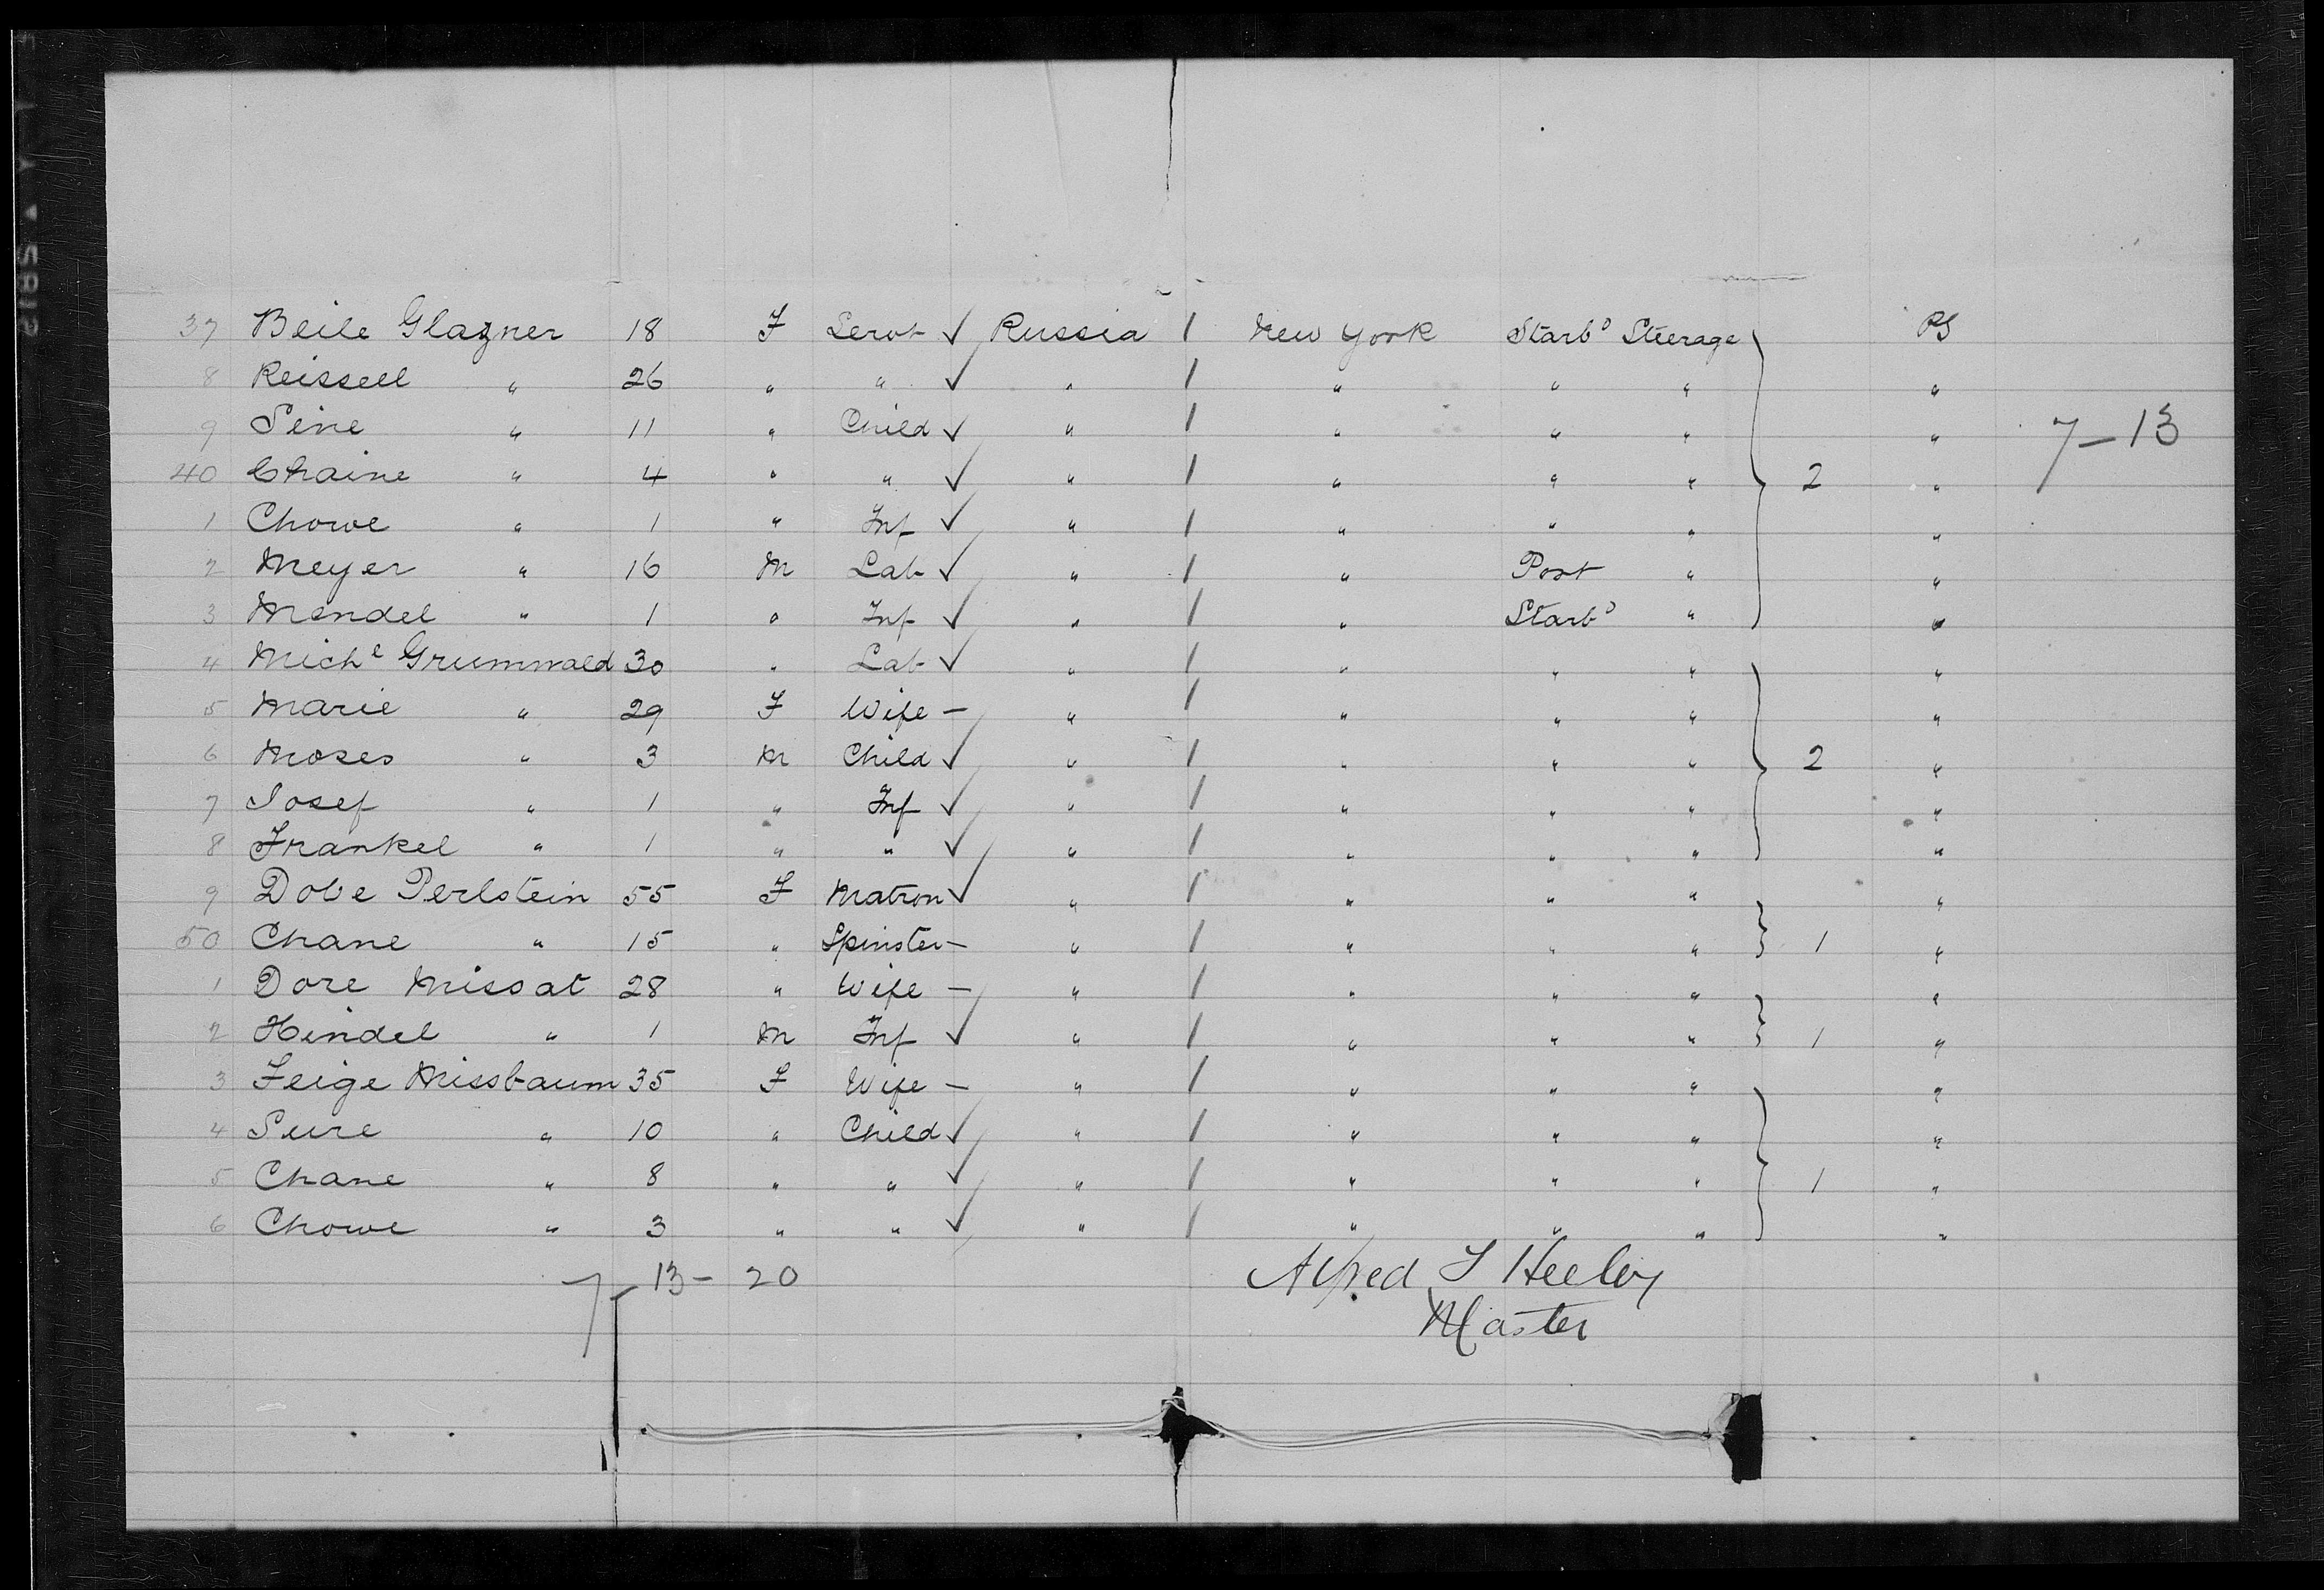 37 Beile Glazner 18 F Servt ✓ Russia / New York Starbd Steerage PS
8 Reissell " 26 " " ✓ " / " " " "
9 Sine " 11 " Child ✓ " / " " " " 7-13
40 Chaine " 4 " " ✓ " / " " " 2 "
1 Chowe " 1 " Inf ✓ " / " " " "
2 Meyer " 16 M Lab ✓ " / " Port " "
3 Mendel " 1 " Inf ✓ " / " Starbd " "
4 Michl Grumwald 30 " Lab ✓ " / " " " "
5 Marie " 29 F Wife - " / " " " "
6 Moses " 3 M Child ✓ " / " " " 2 "
7 Josef " 1 " Inf ✓ " / " " " "
8 Frankel " 1 " " ✓ " / " " " "
9 Dobe Perlstein 55 F Matron ✓ " / " " " "
50 Chane " 15 " Spinster - " / " " " 1 "
1 Dore Missat 28 " Wife - " / " " " "
2 Hindel " 1 M Inf ✓ " / " " " 1 "
3 Feige Missbaum 35 F Wife - " / " " " "
4 Sure " 10 " Child ✓ " / " " " "
5 Chane " 8 " " ✓ " / " " " 1 "
6 Chowe " 3 " " ✓ " / " " " "
7-13-20
Alfred T Heeley
Master